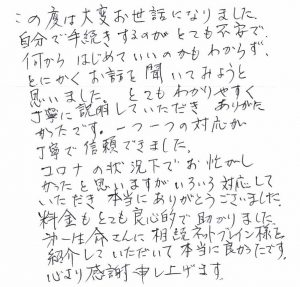 この度は大変お世話になりました。
自分で手続きするのがとても不安で、
何からはじめていいのかもわからず、
とにかくお話を聞いてみようと
思いました。とてもわかりやすく
丁寧に説明していただき ありがた
かったです。一つ一つの対応が
丁寧で信頼できました。
コロナの状況下でお忙がし
かったと思いますがいろいろ対応して
いただき本当にありがとうございました。
料金もとても良心的で助かりました。
第一生命さんに相続ネットブレイン様を
紹介していただいて本当に良かったです。
心より感謝申し上げます。